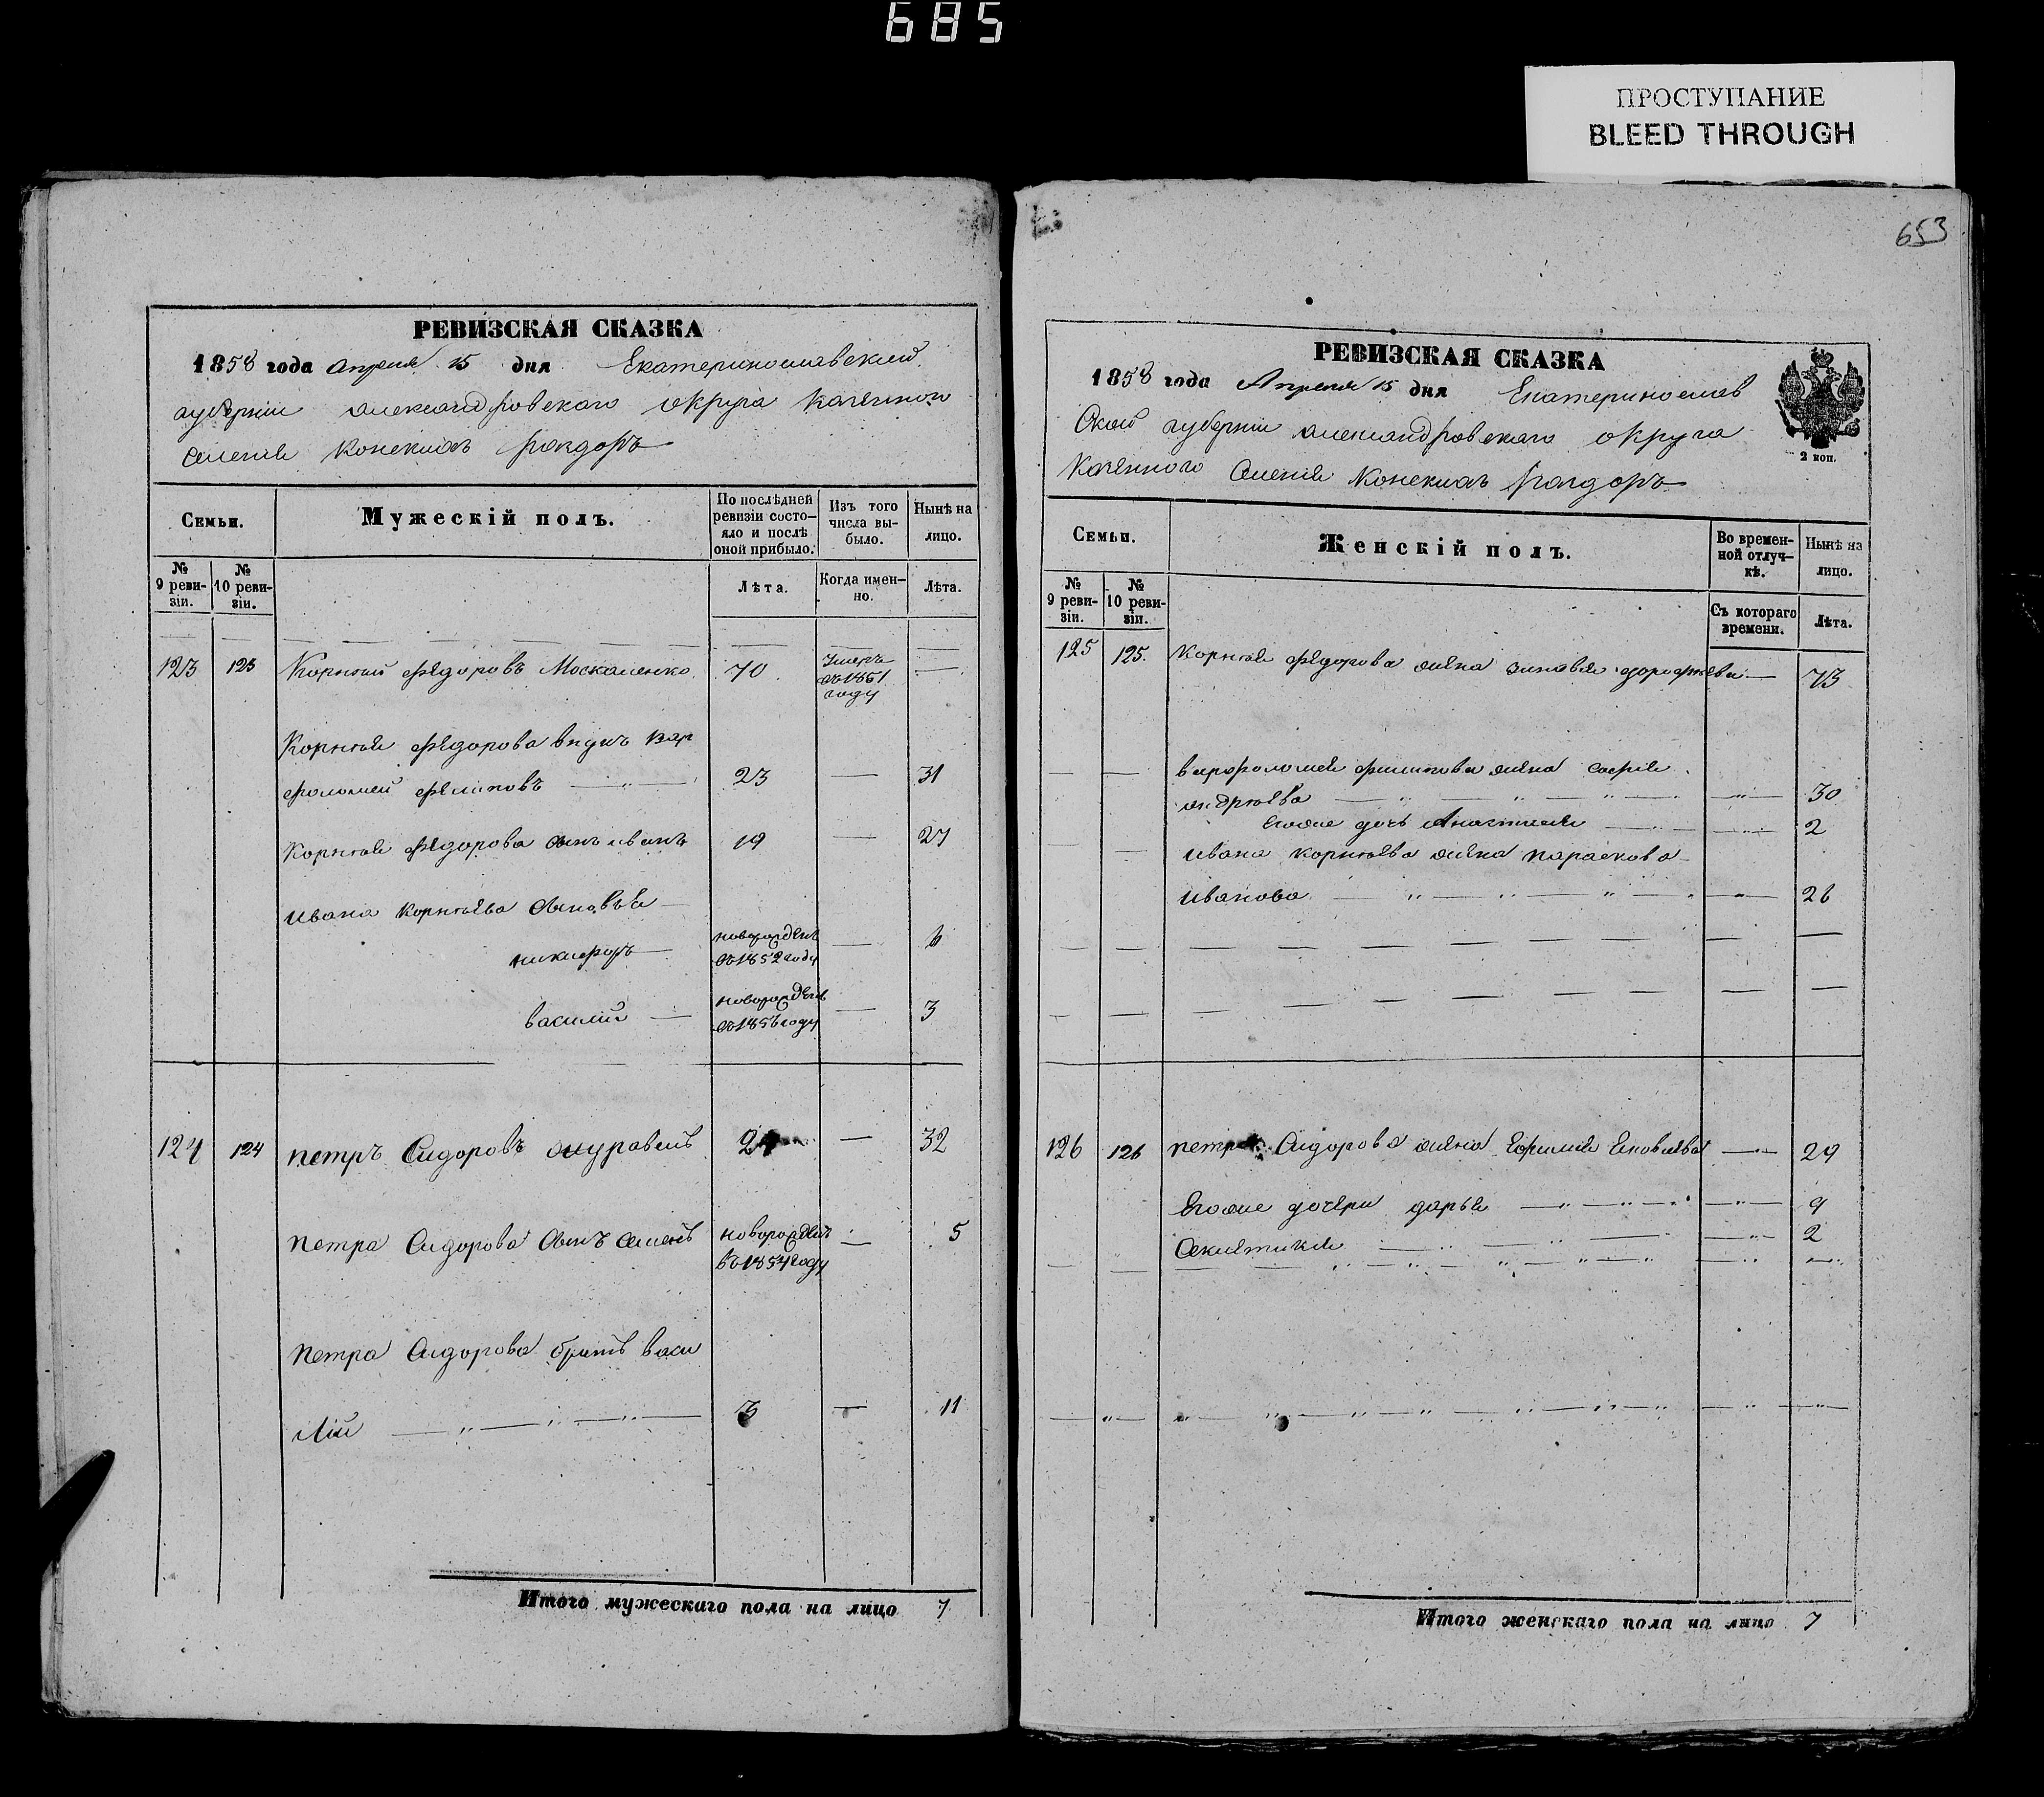 685
ПРОСТУПАНИЕ
BLEED THROUGH
653
РЕВИЗСКАЯ СКАЗКА
1858 года Апреля 15 дня Екатеринославской
губернии александровскаго округа казенного
селения Конскихъ раздоръ
Семьи.
Мужескій полъ.
По послѣдней ревизіи состо-
яло и послѣ оной прибыло.
Изъ того числа вы-
было.
Нынѣ на лицо.
№ 9 реви-
зіи.
№ 10 реви-
зіи.
Лѣта.
Когда имен-
но.
Лѣта.
123 123 Корнѣй Федоровъ Москаленко 70 Умеръ —
въ 1851
году
Корнѣя Федорова внукъ вар
фоломей Филиповъ — " — 23 — 31
Корнѣя Федорова сынъ иванъ 19 — 27
Ивана Корнѣева сыновья —
никифоръ — новорожденъ — 6
въ 1852 году
василій — новорожденъ — 3
въ 1856 году
124 124 петръ Сидоровъ журавель 24 — 32
петра Сидорова сынъ семенъ новорожденъ — 5
въ 1854 году
петра Сидорова братъ васи
лій — " — " — " — 3 — 11
Итого мужескаго пола на лицо 7
РЕВИЗСКАЯ СКАЗКА
1858 года Апреля 15 дня Екатеринослав
ской губернии александровскаго округа
2 коп.
казенного селения Конскихъ раздоръ
Семьи.
Женскій полъ.
Во времен-
ной отлуч-
кѣ.
Нынѣ на лицо.
№ 9 реви-
зіи.
№ 10 реви-
зіи.
Съ котораго времени.
Лѣта.
125 125. Корнѣя Федорова жена зиновья дорофеева — 73
варфоломея филипова жена софия
андреева — " — " — " — 30
Егоже дочь Анастасия — 2
Ивана корнѣева жена параскова
иванова — " — " — " — 26
126 126 петра Сидорова жена Ефимия Яковлева — 29
Егоже дочери дарья — " — " — 9
— " — 2
Итого женскаго пола на лицо 7